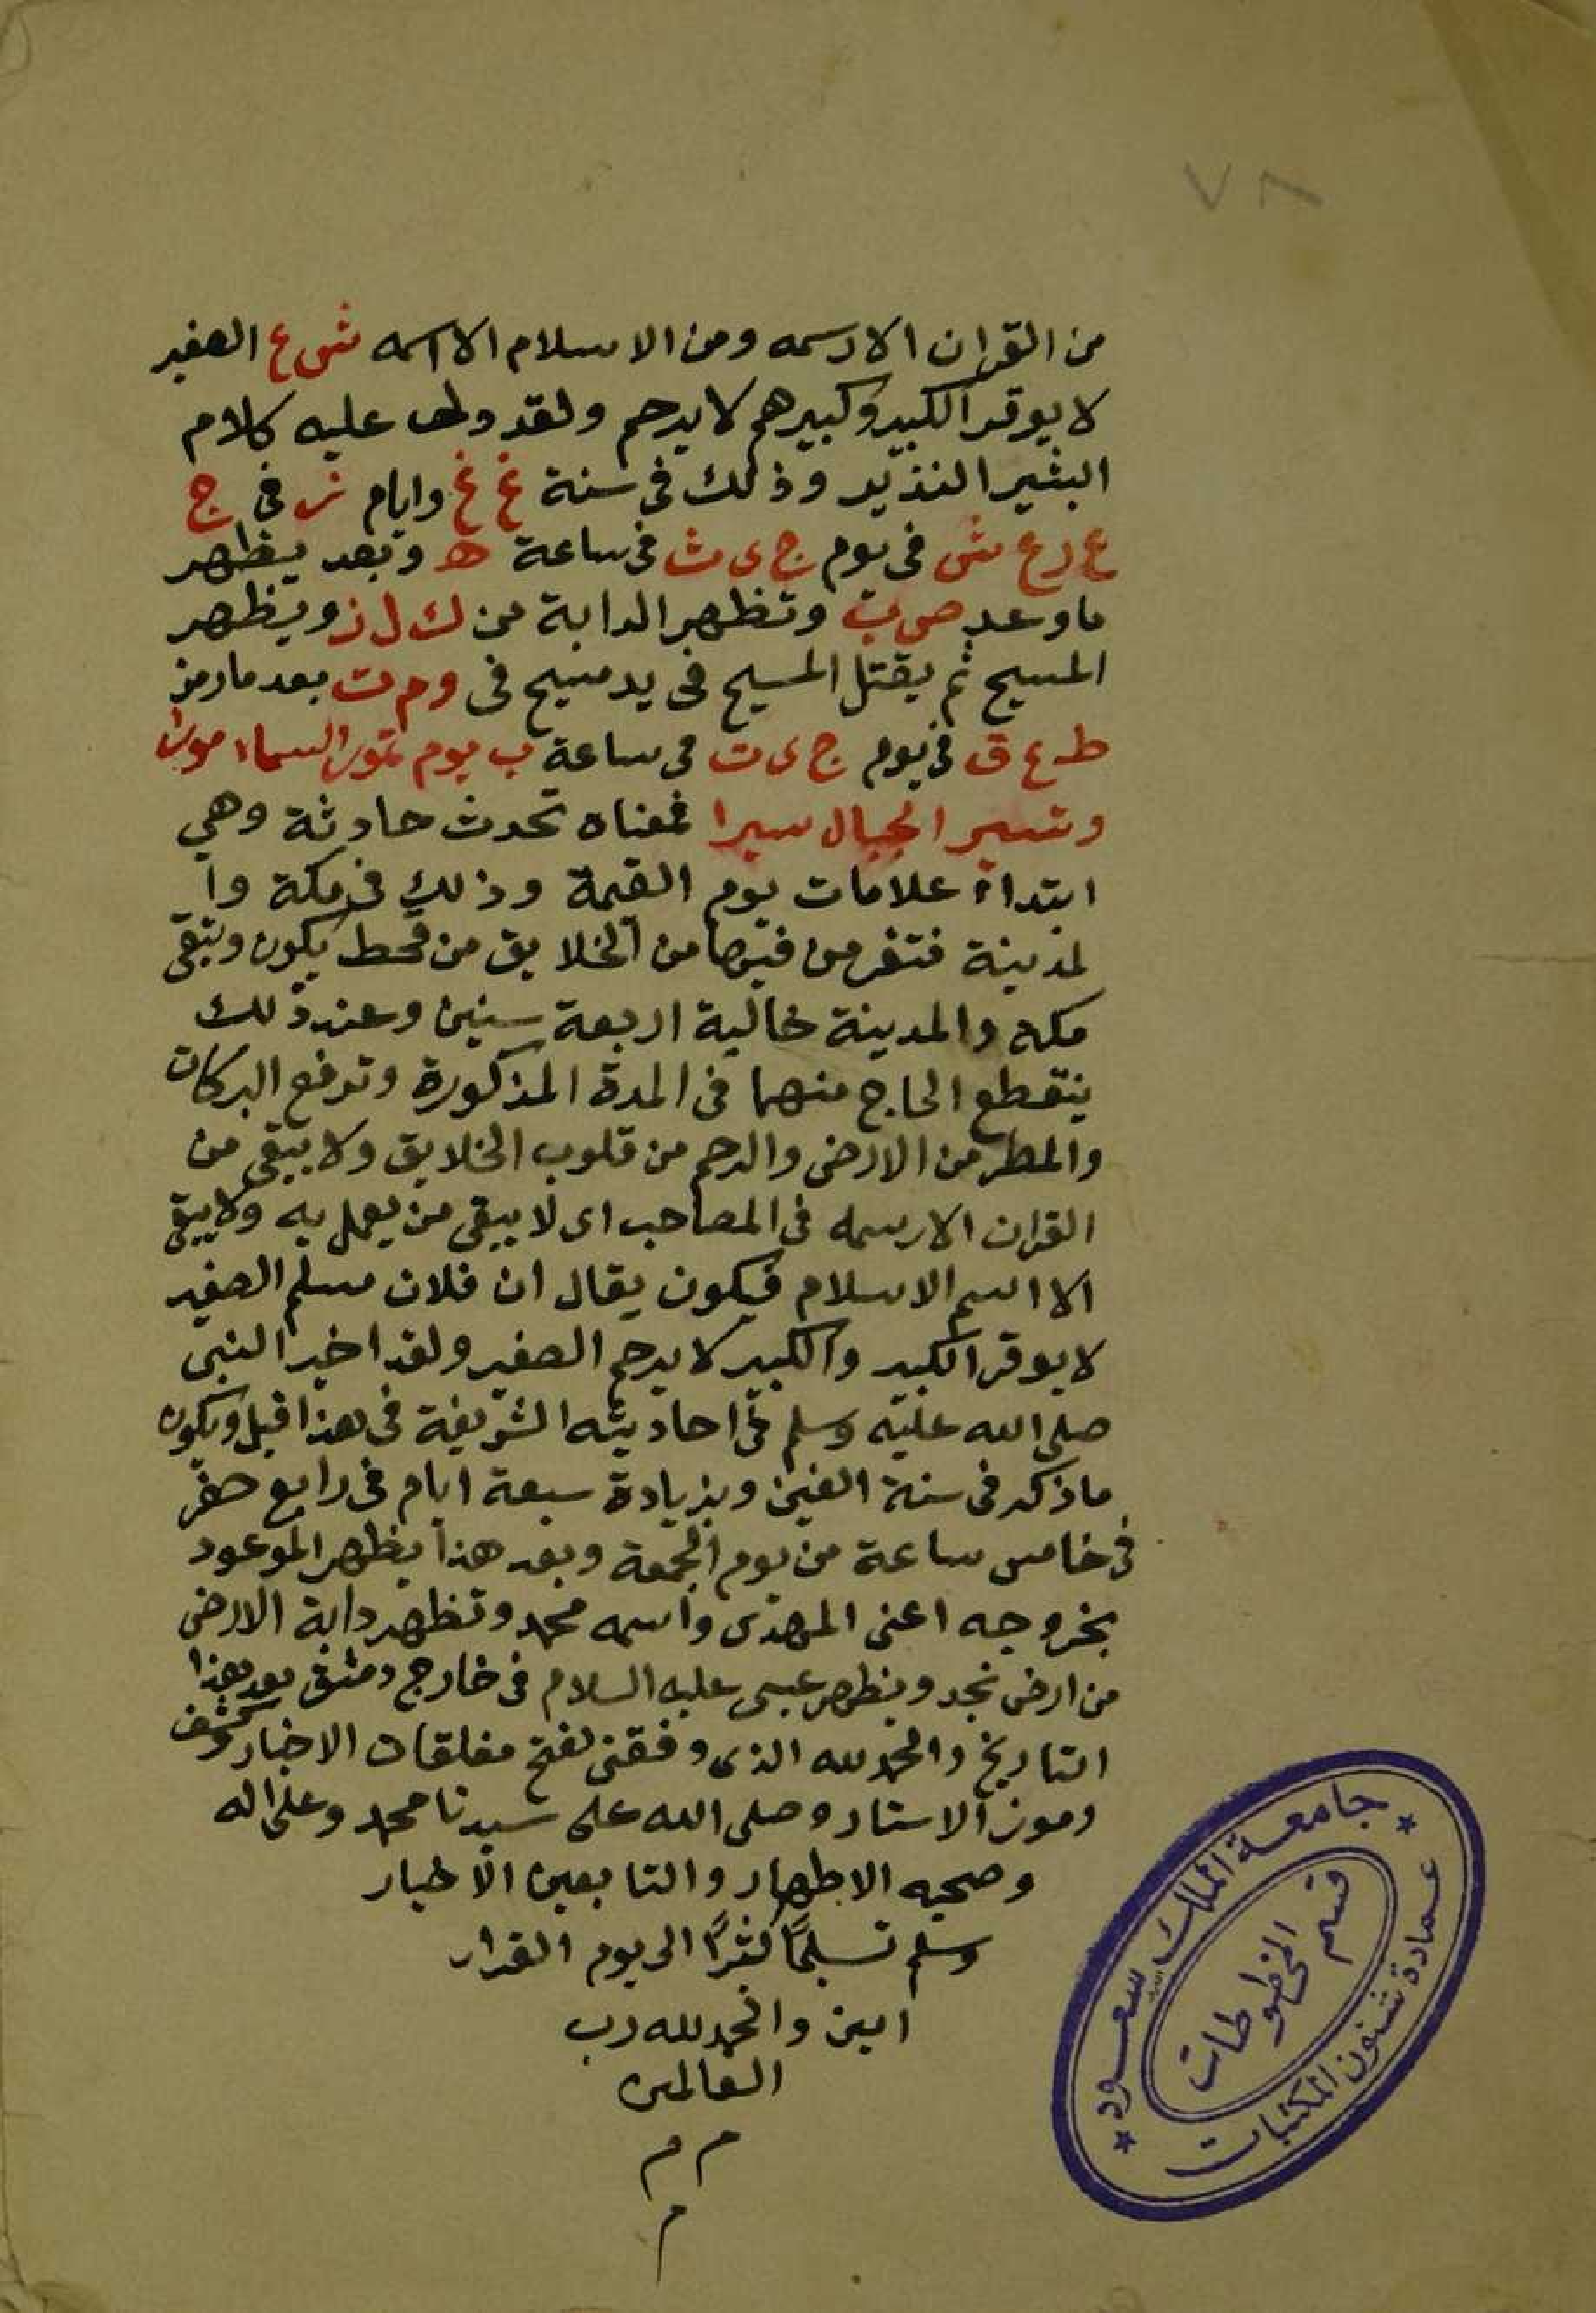 ٧٨
من القران الا رسمه ومن الاسلام الا اسمه ش ع الصغير
لا يوقر الكبير وكبيرهم لا يرحم ولقد دلت عليه كلام
البشير النذير وذلك فى سنة غ غ وايام ز فى ج
ع ر ع ش فى يوم ج ى ث فى ساعة ه وبعد يظهر
ما وعد ص ب وتظهر الدابة من ك ل ز ويظهر
المسيح ثم يقتل المسيح فى يد مسيح فى و م ت بعد مارمز
ط ع ق فى يوم ج ى ت فى ساعة ب يوم تمور السماء مورا
وتسير الجبال سيرا فمعناه تحدث حادثة وهي
ابتداء علامات يوم القيمة وذلك فى مكة وا
لمدينة فتفر من فيها من الخلايق من قحط يكون وتبقى
مكه والمدينة خالية اربعة سنين وعند ذلك
ينقطع الحاج منهما فى المدة المذكورة وترفع البركات
والمطر من الارض والرحم من قلوب الخلايق ولا يبقى من
القران الا رسمه فى المصاحب اى لا يبقى من يعمل به ولا يبقى
الا اسم الاسلام فيكون يقال ان فلان مسلم الصغير
لا يوقر الكبير والكبير لا يرحم الصغير ولقد اخبر النبى
صلى الله عليه وسلم فى احاديثه الشريفة فى هذا قبل ويكون
ماذكر فى سنة الفين وبزيادة سبعة ايام فى رابع صفر
فى خامس ساعة من يوم الجمعة وبعد هذا يظهر الموعود
بخروجه اعنى المهدى واسمه محمد وتظهر دابة الارض
من ارض نجد ويظهر عيسى عليه السلام فى خارج دمشق بعد هذا
التاريخ والحمد لله الذى وفقنى لفتح مغلقات الاخبار وكشف
رموز الاستار وصلى الله على سيدنا محمد وعلى اله
وصحبه الاطهار والتابعين الاخيار
وسلم تسليمًا كثيرًا الى يوم القرار
امين والحمد لله رب
العالمين
م م
م
جامعة الملك سعود
قسم المخطوطات
عمادة شئون المكتبات